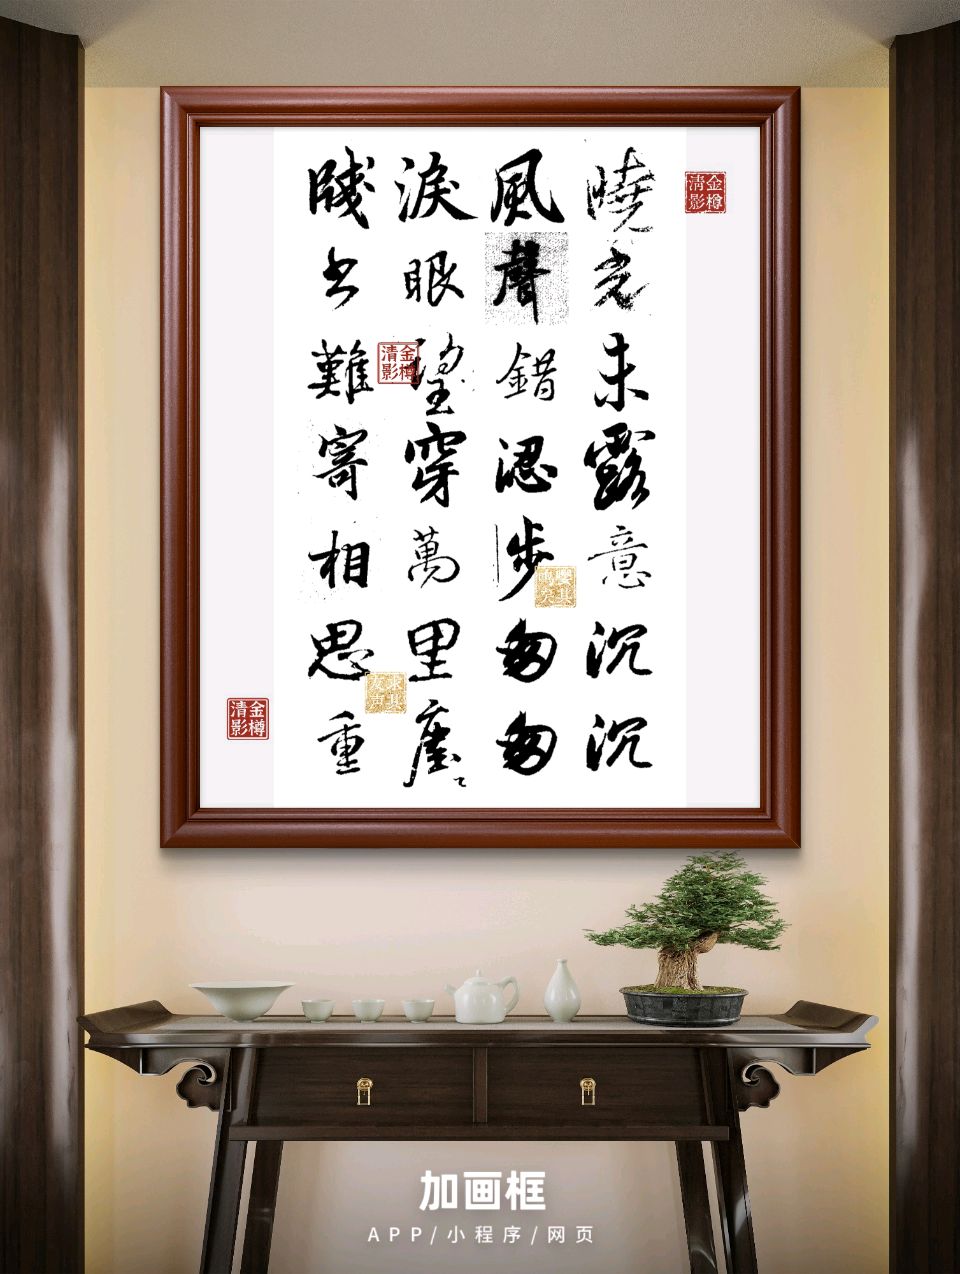 金樽清影
曉光未露意沉沉
風聲錯認步匆匆
淚眼望穿萬里塵
牋书難寄相思重
金樽清影
金樽清影
加画框
APP/小程序/网页